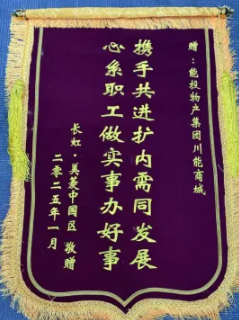 赠：能投物产集团川能商城
携手共进扩内需同发展
心系职工做实事办好事
长虹·美菱中国区 敬赠
二零二五年一月